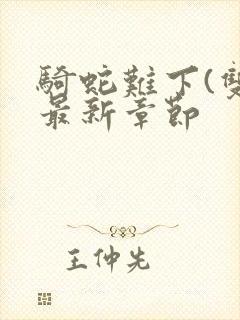 騎蛇難下(雙
最新章節
王仲先